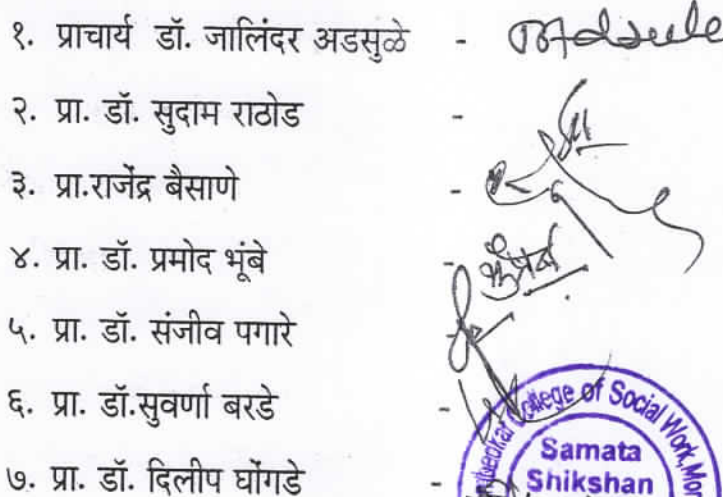 १. प्राचार्य डॉ. जालिंदर अडसुळे -
२. प्रा. डॉ. सुदाम राठोड -
३. प्रा.राजेंद्र बैसाणे -
४. प्रा. डॉ. प्रमोद भूंबे -
५. प्रा. डॉ. संजीव पगारे -
६. प्रा. डॉ.सुवर्णा बरडे -
७. प्रा. डॉ. दिलीप घोंगडे -
College of Social Work,
Samata
Shikshan